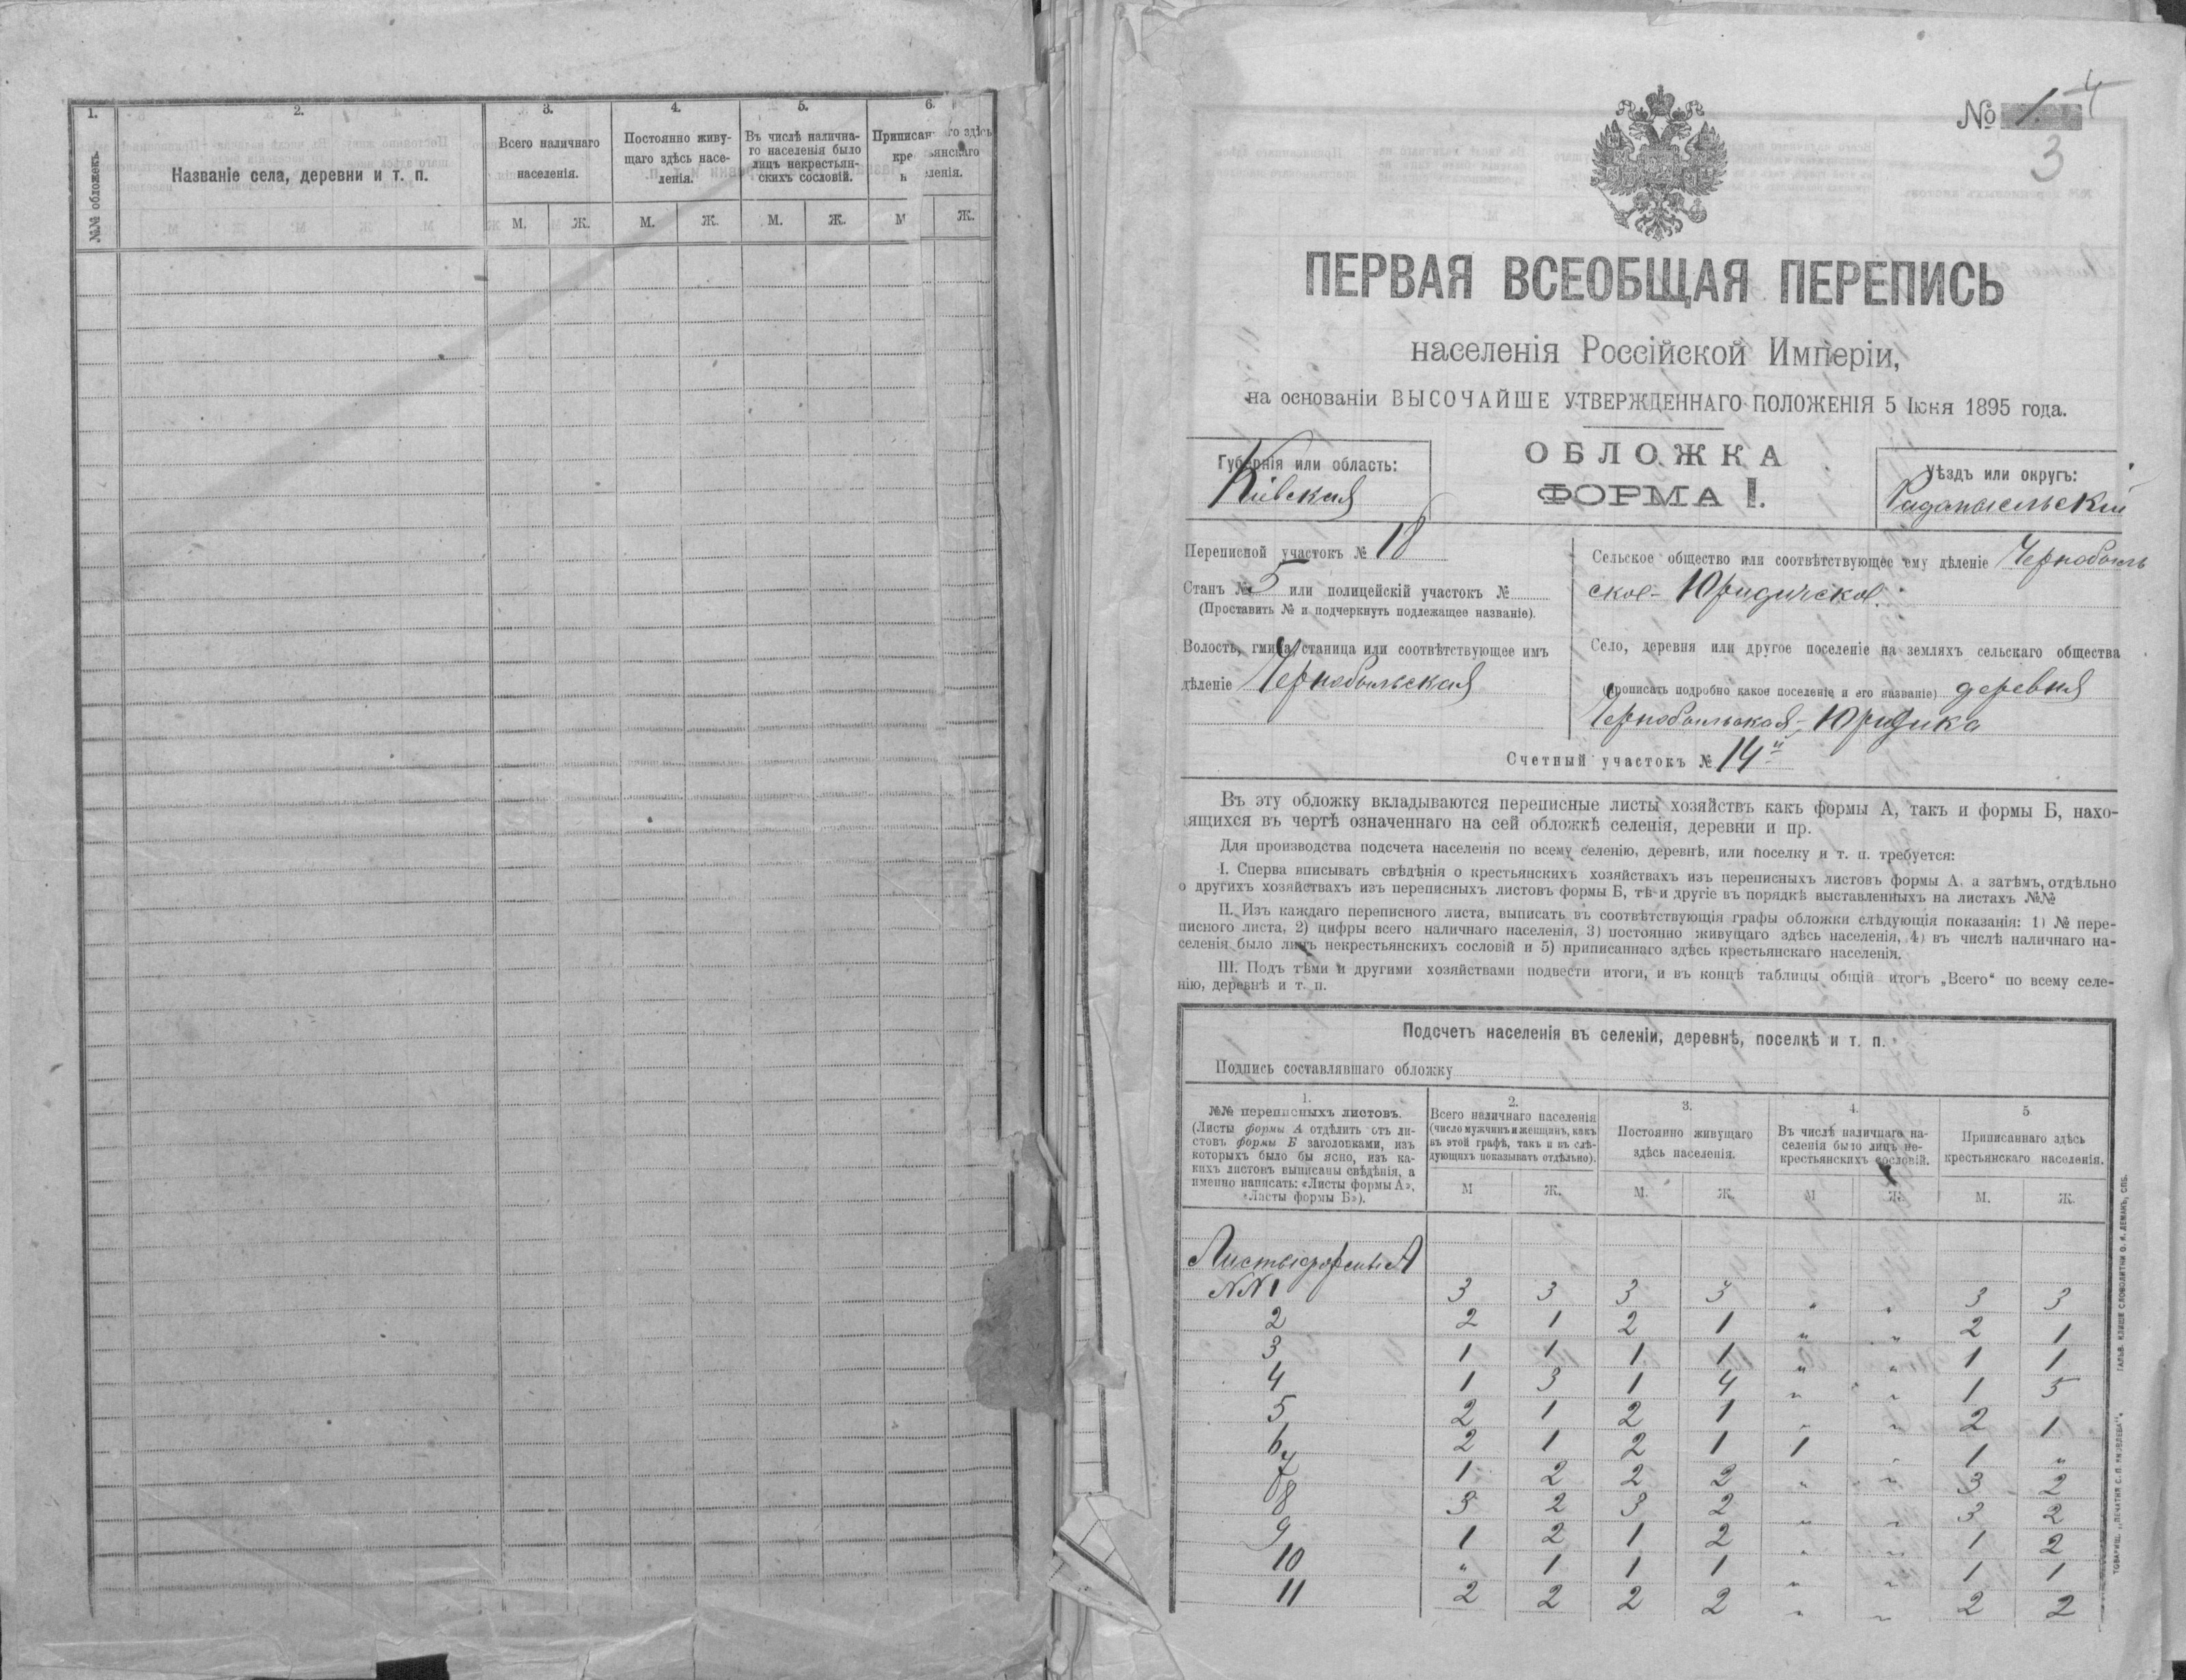 1.
2.
3.
4.
5.
6.
№№ обложекъ.
Названіе села, деревни и т. п.
Всего наличнаго
населенія.
Постоянно живу-
щаго здѣсь насе-
ленія.
Въ числѣ налична-
го населенія было
лицъ некрестьян-
скихъ сословій.
Приписан го здѣсь
кре ьянскаго
н еленія.
М. Ж. М. Ж. М. Ж. М Ж.
№ 1. 4
3
ПЕРВАЯ ВСЕОБЩАЯ ПЕРЕПИСЬ
населенія Россійской Имперіи,
на основаніи ВЫСОЧАЙШЕ УТВЕРЖДЕННАГО ПОЛОЖЕНІЯ 5 Іюня 1895 года.
Губернія или область:
Кіевская
ОБЛОЖКА
ФОРМА I.
Уѣздъ или округъ:
Радомысльскій
Переписной участокъ № 18
Станъ № 5 или полицейскій участокъ №
(Проставить № и подчеркнуть подлежащее названіе).
Волость, гмина, станица или соотвѣтствующее имъ
дѣленіе Чернобыльская
Сельское общество или соотвѣтствующее ему дѣленіе Чернобыль
ское-Юридическое.
Село, деревня или другое поселеніе на земляхъ сельскаго общества
(прописать подробно какое поселеніе и его названіе) деревня
Чернобыльская-Юридика
Счетный участокъ № 14й
Въ эту обложку вкладываются переписные листы хозяйствъ какъ формы А, такъ и формы Б, нахо-
ящихся въ чертѣ означеннаго на сей обложкѣ селенія, деревни и пр.
Для производства подсчета населенія по всему селенію, деревнѣ, или поселку и т. п. требуется:
I. Сперва вписывать свѣдѣнія о крестьянскихъ хозяйствахъ изъ переписныхъ листовъ формы А, а затѣмъ, отдѣльно
о другихъ хозяйствахъ изъ переписныхъ листовъ формы Б, тѣ и другіе въ порядкѣ выставленныхъ на листахъ №№
II. Изъ каждаго переписного листа, выписать въ соотвѣтствующія графы обложки слѣдующія показанія: 1) № пере-
писного листа, 2) цифры всего наличнаго населенія, 3) постоянно живущаго здѣсь населенія, 4) въ числѣ наличнаго на-
селенія было лицъ некрестьянскихъ сословій и 5) приписаннаго здѣсь крестьянскаго населенія.
III. Подъ тѣми и другими хозяйствами подвести итоги, и въ концѣ таблицы общій итогъ „Всего“ по всему селе-
нію, деревнѣ и т. п.
Подсчетъ населенія въ селеніи, деревнѣ, поселкѣ и т. п.
Подпись составлявшаго обложку
1.
№№ переписныхъ листовъ.
(Листы формы А отдѣлить отъ ли-
стовъ формы Б заголовками, изъ
которыхъ было бы ясно, изъ ка-
кихъ листовъ выписаны свѣдѣнія, а
именно написать: «Листы формы А»,
«Листы формы Б»).
2.
Всего наличнаго населенія
(число мужчинъ и женщинъ, какъ
въ этой графѣ, такъ и въ слѣ-
дующихъ показывать отдѣльно).
3.
Постоянно живущаго
здѣсь населенія.
4.
Въ числѣ наличнаго на-
селенія было лицъ не-
крестьянскихъ сословій.
5
Приписаннаго здѣсь
крестьянскаго населенія.
М Ж. М. Ж. М Ж. М. Ж.
Листы формы А
NN 1 3 3 3 3 " " 3 3
2 2 1 2 1 " " 2 1
3 1 1 1 1 " " 1 1
4 1 3 1 4 " " 1 5
5 2 1 2 1 " " 2 1
6 2 1 2 1 1 " 1 "
7 1 2 2 2 " " 3 2
8 3 2 3 2 " " 3 2
9 1 2 1 2 " " 1 2
10 " 1 1 1 " " 1 1
11 2 2 2 2 " " 2 2
ГАЛЬВ. КЛИШЕ СЛОВОЛИТНИ О. И. ЛЕМАНЪ, СПБ.
ТОВАРИЩ. „ПЕЧАТНЯ С. П. ЯКОВЛЕВА“.